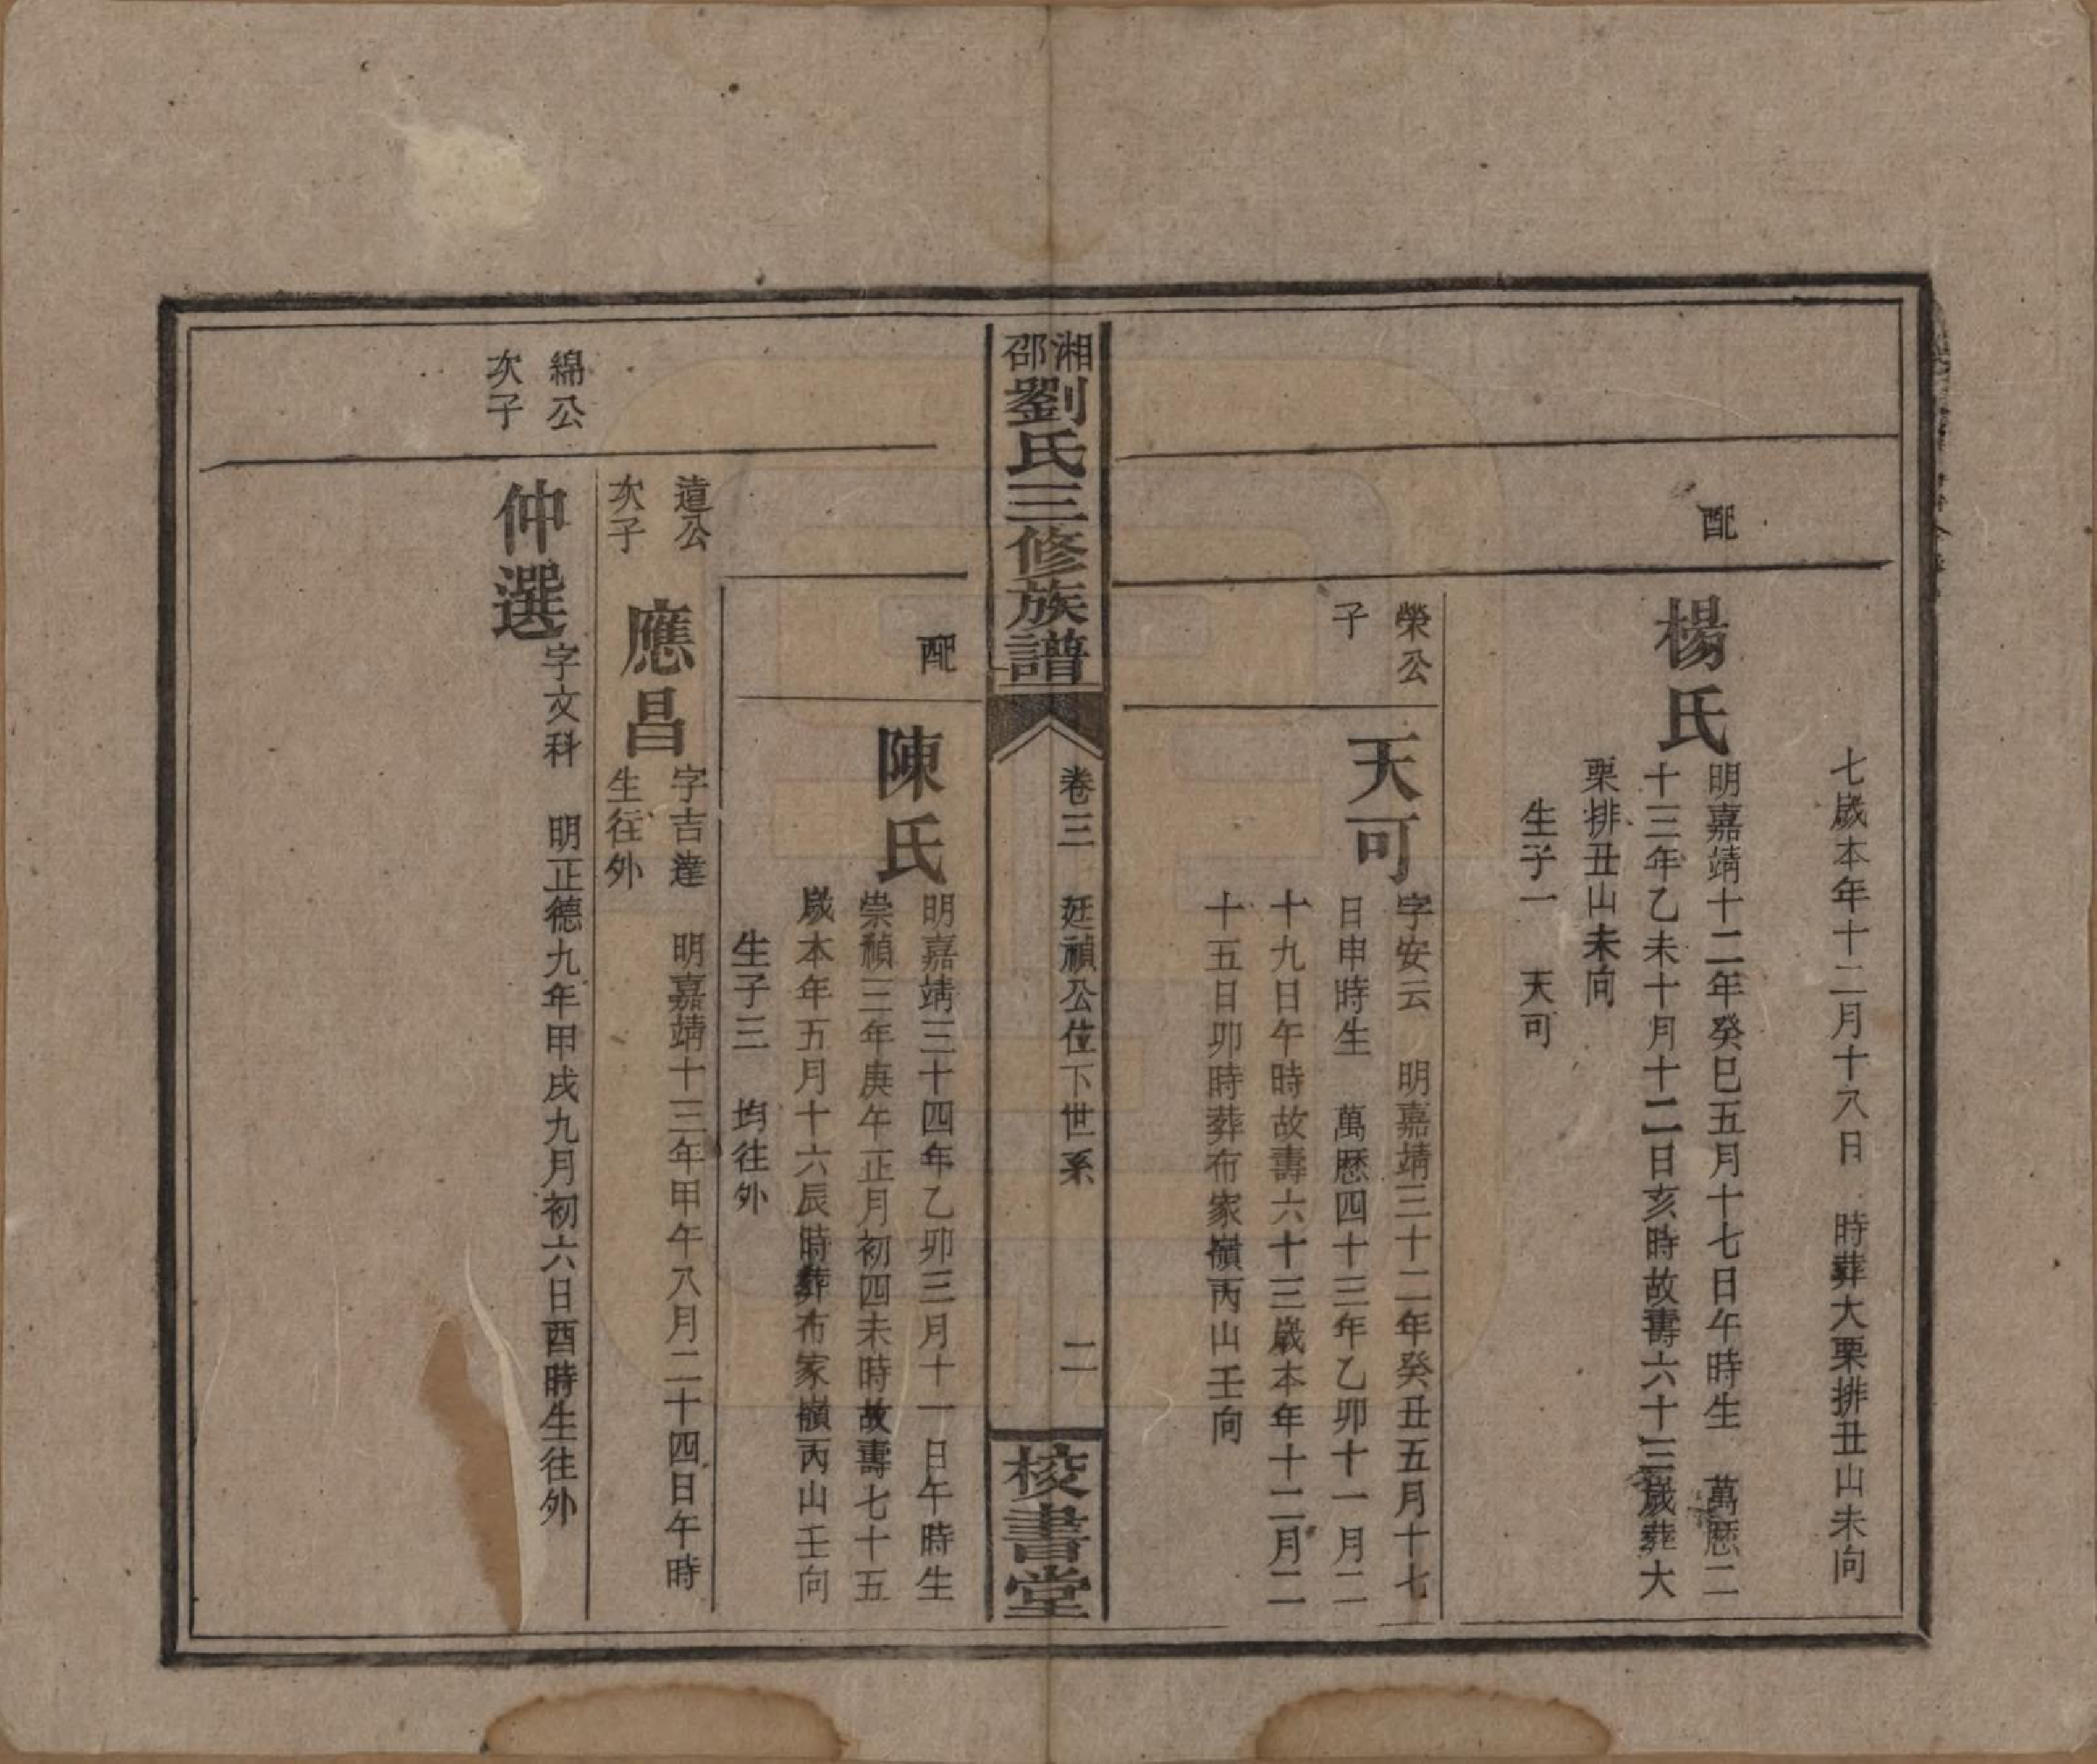 七歲本年十二月十八日　時葬大栗排丑山未向
配
楊氏
明嘉靖十二年癸巳五月十七日午時生　萬厯二
十三年乙未十月十二日亥時故壽六十三歲葬大
栗排丑山未向
生子一　天可
榮公
子
天可
字安云　明嘉靖三十二年癸丑五月十七
日申時生　萬厯四十三年乙卯十一月二
十九日午時故壽六十三歲本年十二月二
十五日卯時葬布家嶺丙山壬向
湘邵劉氏三修族譜
卷三　廷禎公位下世系　二
校書堂
配
陳氏
明嘉靖三十四年乙卯三月十一日午時生
崇禎三年庚午正月初四未時故壽七十五
歲本年五月十六辰時葬布家嶺丙山壬向
生子三　均往外
遠公
次子
應昌
字吉達　明嘉靖十三年甲午八月二十四日午時
生往外
綿公
次子
仲選
字文科　明正德九年甲戌九月初六日酉時生往外